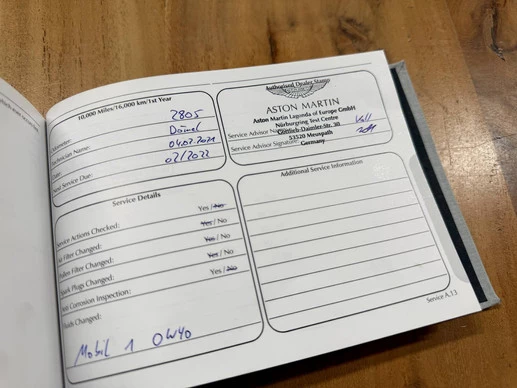 10,000 Miles/16,000 km/1st Year
2805
Daniel
Technician Name:
04.02.2021
Date:
Next Service Due: 02/2022
Authorised Dealer Stamp
ASTON MARTIN
Aston Martin Lagonda of Europe GmbH
Nürburgring Test Centre
Gottlieb-Daimler-Str. 30
53520 Meuspath
Germany
Service Advisor
Service Advisor Signature:
Service Details
Service Actions Checked: Yes / No
Air Filter Changed: Yes / No
Pollen Filter Changed: Yes / No
Spark Plugs Changed: Yes / No
Anti Corrosion Inspection: Yes / No
Changed:
Mobil 1 0W40
Additional Service Information
Service A.13